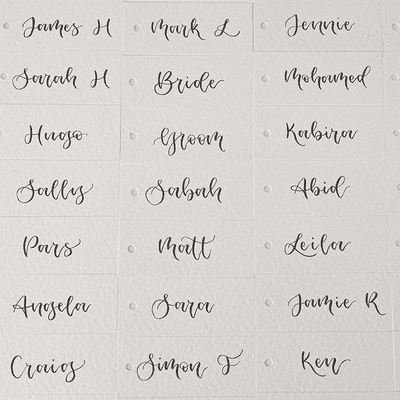 James H
Mark L
Jennie
Sarah H
Bride
Mohamed
Hugo
Groom
Kabira
Sally
Sabah
Abid
Pars
Matt
Leila
Angela
Sara
Jamie R
Craig
Simon F
Ken